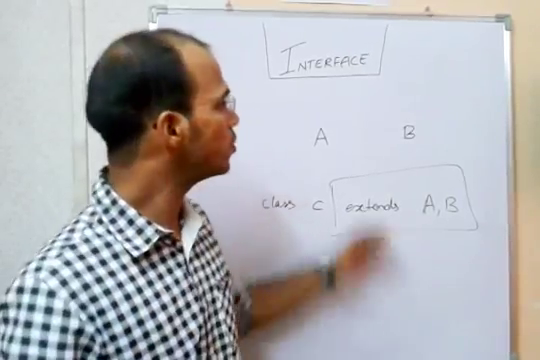 INTERFACE
A B
class C extends A, B